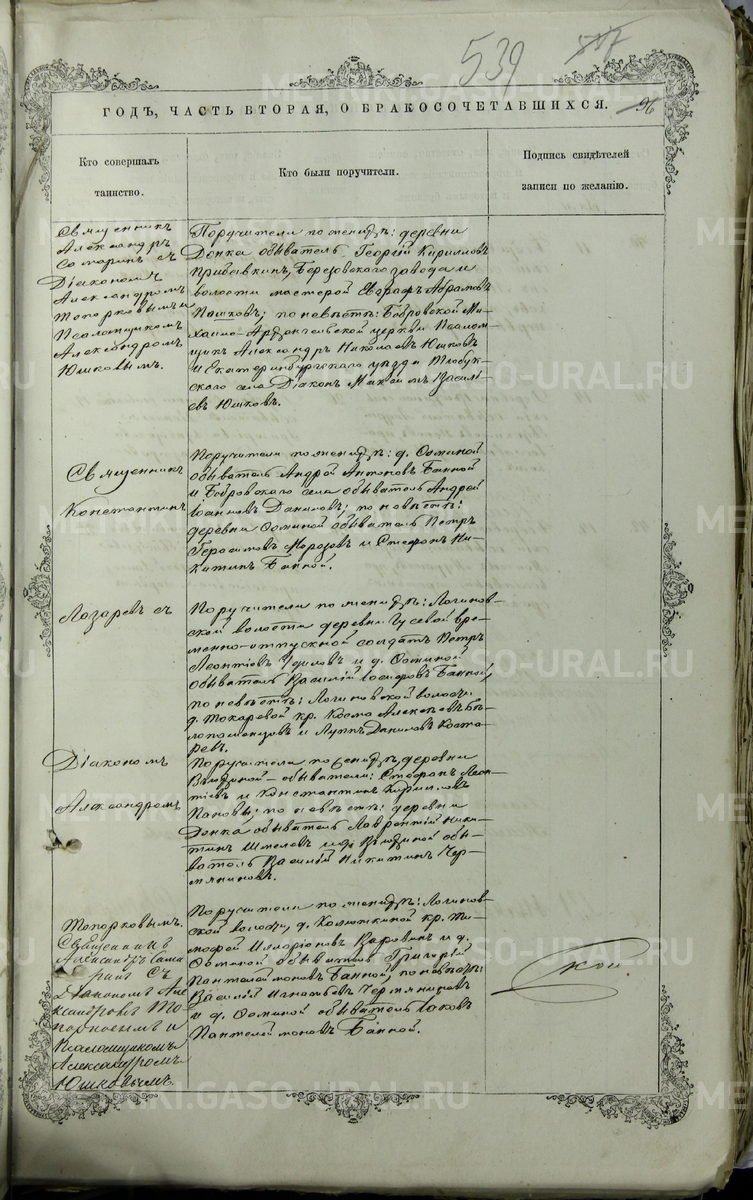 539
ГОДЪ, ЧАСТЬ ВТОРАЯ, О БРАКОСОЧЕТАВШИХСЯ.
96
Кто совершалъ
таинство.
Кто были поручители.
Подпись свидѣтелей
записи по желанію.
Священникъ
Александръ
съ
Діакономъ
Александромъ
Топорковымъ и
Псаломщикомъ
Александромъ
Юшковымъ.
Поручители по женихѣ: деревни
Донка обыватель Георгій Кирилловъ
Березовскаго завода и
волости мастерой Евграфъ Абрамовъ
Пошковъ; по невѣстѣ: Бобровской Ми-
хаило-Архангельской церкви Псалом-
щикъ Александръ Николаевъ Юшковъ
и Екатеринбургскаго уѣзда
села Діаконъ Максимъ Василі-
евъ Юшковъ.
Священникъ
Константинъ
Поручители по женихѣ: д.
обыватель Андрей Антоновъ Банной
и Бобровскаго села обыватель Андрей
Іоанновъ Даниловъ; по невѣстѣ:
деревни обыватель Петръ
Герасимовъ Морозовъ и Стефанъ Ни-
китинъ Банной.
Лазаревъ съ
Поручители по женихѣ: Логинов-
ской волости деревни Гусевой вре-
менно-отпускной солдатъ Петръ
Леонтіевъ и д.
обыватель Василій Іосифовъ Банной,
по невѣстѣ: Логиновской волости
д. Токаревой кр. Косма Алексѣевъ Бѣ-
лопоменцовъ и Луппъ Даниловъ Коста-
ревъ.
Діакономъ
Александромъ
Поручители по женихѣ, деревни
обыватели: Стефанъ Леон-
тіевъ и Константинъ Кириловъ
Пановы; по невѣстѣ: деревни
Донка обыватель Лаврентій Ники-
тинъ Шмелевъ и д. обы-
ватель Василій Никитинъ Чер-
мяниновъ.
Топорковымъ.
Священникъ
Александръ
съ
Діакономъ Але-
ксандромъ То-
порковымъ и
Псаломщикомъ
Александромъ
Юшковымъ.
Поручители по женихѣ: Логинов-
ской волости, д. Колюткиной кр. Ти-
мофей Илларіоновъ Варовинъ и д.
обыватель Григорій
Пантелеймоновъ Банной, по невѣстѣ:
Василій Игнатьевъ Чермяниновъ
и д. обыватель Іаковъ
Пантелеймоновъ Банной.
METRIKI.GASO-URAL.RU